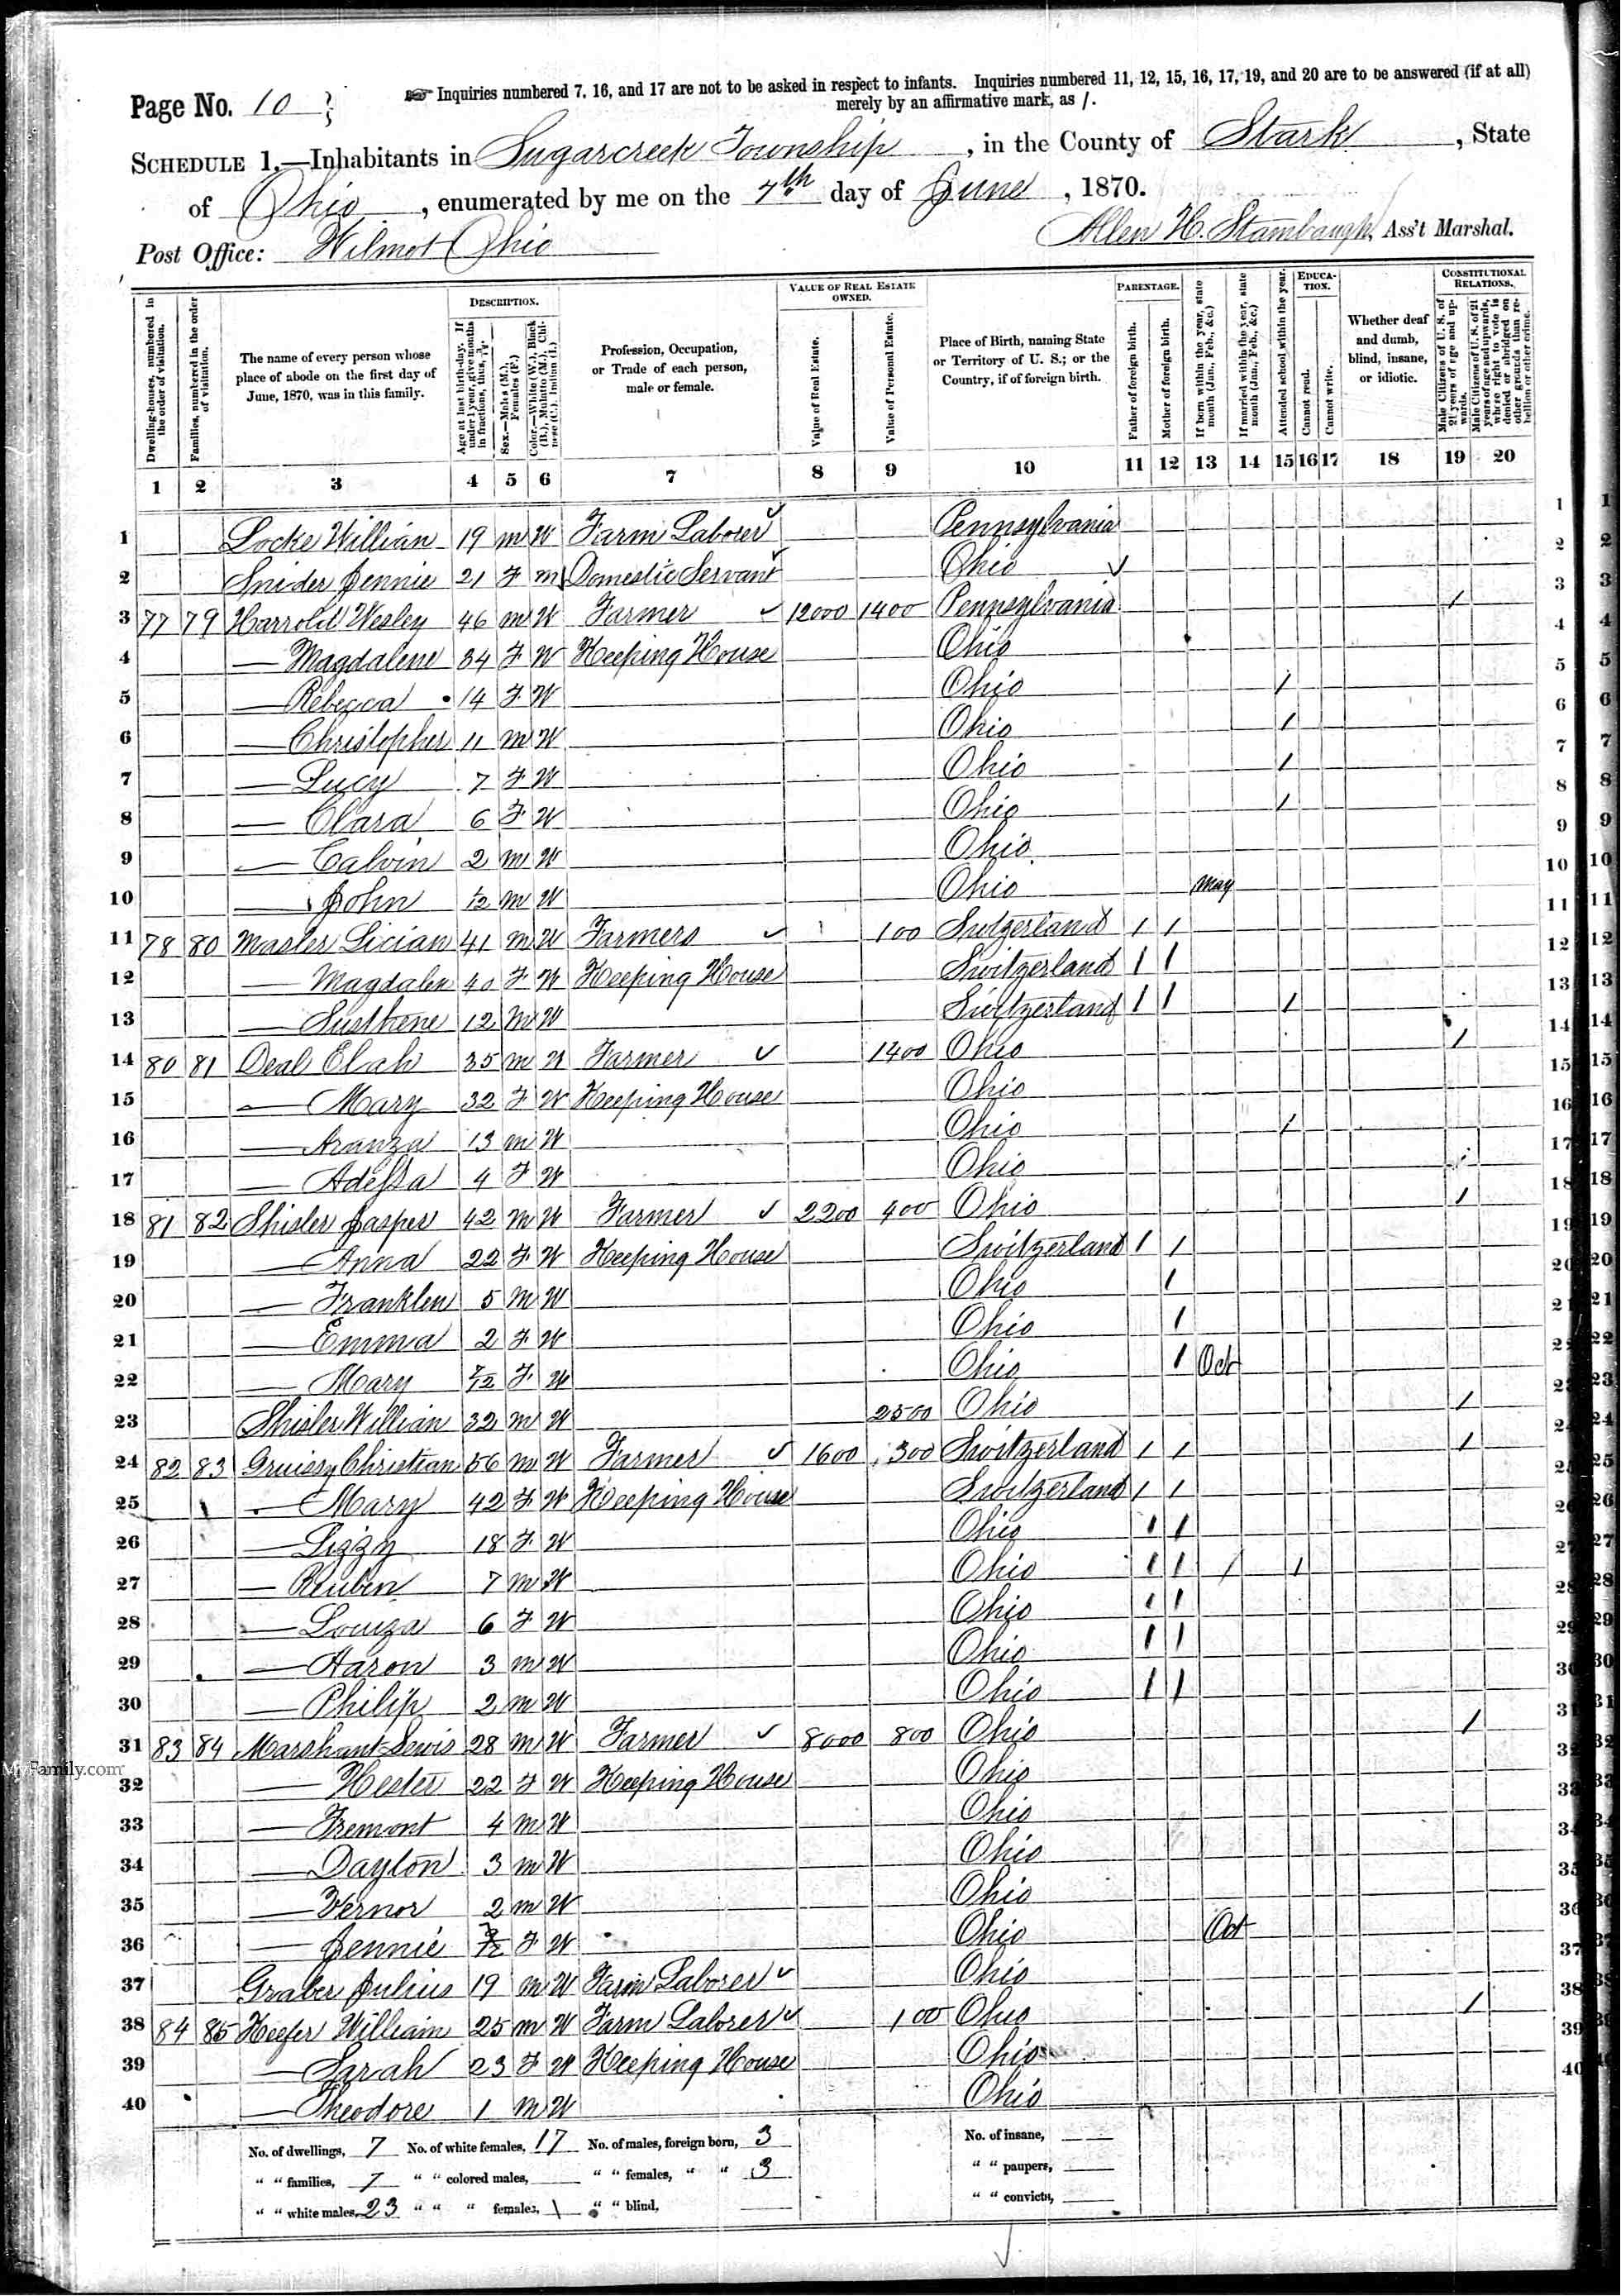 Page No. 10
☞ Inquiries numbered 7, 16, and 17 are not to be asked in respect to infants. Inquiries numbered 11, 12, 15, 16, 17, 19, and 20 are to be answered (if at all)
merely by an affirmative mark, as /.
SCHEDULE 1.—Inhabitants in Sugarcreek Township, in the County of Stark, State
of Ohio, enumerated by me on the 7th day of June, 1870.
Post Office: Wilmot Ohio
Allen H. Stambaugh, Ass't Marshal.
Dwelling-houses, numbered in the order of visitation.
Families, numbered in the order of visitation.
The name of every person whose place of abode on the first day of June, 1870, was in this family.
DESCRIPTION.
Age at last birth-day. If under 1 year, give months in fractions, thus, 3/12
Sex.—Males (M.), Females (F.)
Color.—White (W.), Black (B.), Mulatto (M.), Chinese (C.), Indian (I.)
Profession, Occupation, or Trade of each person, male or female.
VALUE OF REAL ESTATE OWNED.
Value of Real Estate.
Value of Personal Estate.
Place of Birth, naming State or Territory of U. S.; or the Country, if of foreign birth.
PARENTAGE.
Father of foreign birth.
Mother of foreign birth.
If born within the year, state month (Jan., Feb., &c.)
If married within the year, state month (Jan., Feb., &c.)
Attended school within the year.
EDUCATION.
Cannot read.
Cannot write.
Whether deaf and dumb, blind, insane, or idiotic.
CONSTITUTIONAL RELATIONS.
Male Citizens of U. S. of 21 years of age and upwards.
Male Citizens of U. S. of 21 years of age and upwards, whose right to vote is denied or abridged on other grounds than rebellion or other crime.
1 2 3 4 5 6 7 8 9 10 11 12 13 14 15 16 17 18 19 20
1 Locke Willian 19 m W Farm Laborer Pennsylvania 1
2 Snider Jennie 21 F m Domestic Servant Ohio 2
3 77 79 Harrold Wesley 46 m W Farmer 12000 1400 Pennsylvania / 3
4 — Magdalene 34 F W Keeping House Ohio 4
5 — Rebecca 14 F W Ohio / 5
6 — Christopher 11 m W Ohio / 6
7 — Lucy 7 F W Ohio / 7
8 — Clara 6 F W Ohio / 8
9 — Calvin 2 m W Ohio 9
10 — John 1/12 m W Ohio May 10
11 78 80 Masler Lician 41 m W Farmers 100 Switzerland / / 11
12 — Magdalen 40 F W Keeping House Switzerland / / 12
13 — Susthene 12 m W Switzerland / / / 13
14 80 81 Deal Elah 35 m W Farmer 1400 Ohio / 14
15 — Mary 32 F W Keeping House Ohio 15
16 — Aranza 13 m W Ohio / 16
17 — Adessa 4 F W Ohio 17
18 81 82 Shisler Jasper 42 m W Farmer 2200 400 Ohio / 18
19 — Anna 22 F W Keeping House Switzerland / / 19
20 — Franklen 5 m W Ohio / 20
21 — Emma 2 F W Ohio / 21
22 — Mary 8/12 F W Ohio / Oct 22
23 Shisler Willian 32 m W 2500 Ohio / 23
24 82 83 Gruissy Christian 56 m W Farmer 1600 300 Switzerland / / / 24
25 — Mary 42 F W Keeping House Switzerland / / 25
26 — Lizzy 18 F W Ohio / / 26
27 — Reuben 7 m W Ohio / / / / 27
28 — Louiza 6 F W Ohio / / 28
29 — Aaron 3 m W Ohio / / 29
30 — Philip 2 m W Ohio / / 30
31 83 84 Marshant Lewis 28 m W Farmer 8000 800 Ohio / 31
32 — Hester 22 F W Keeping House Ohio 32
33 — Fremont 4 m W Ohio 33
34 — Dayton 3 m W Ohio 34
35 — Vernor 2 m W Ohio 35
36 — Jennie F W Ohio Oct 36
37 Graber Julius 19 m W Farm Laborer Ohio 37
38 84 85 Keefer William 25 m W Farm Laborer 100 Ohio / 38
39 — Sarah 23 F W Keeping House Ohio 39
40 — Theodore 1 m W Ohio 40
No. of dwellings, 7 No. of white females, 17 No. of males, foreign born, 3 No. of insane,
" " families, 7 " " colored males, " " females, " " 3 " " paupers,
" " white males, 23 " " " females, 1 " " blind, " " convicts,
MyFamily.com